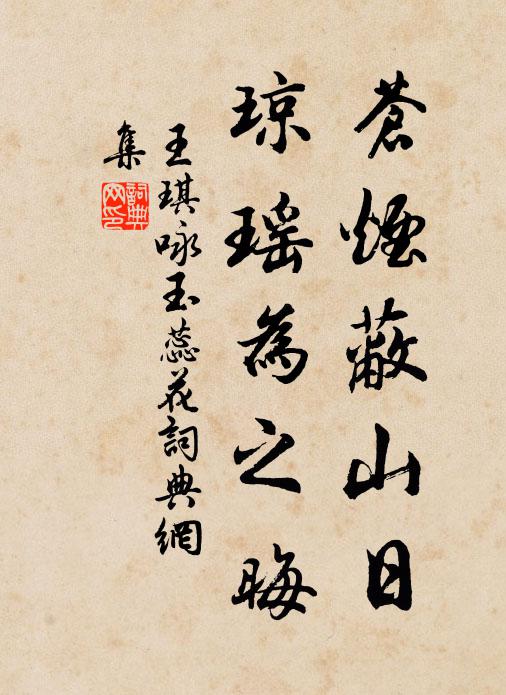 蒼煙蔽山日
琼瑶為之晦
王琪咏玉蕊花詞典網
集
詞典網印